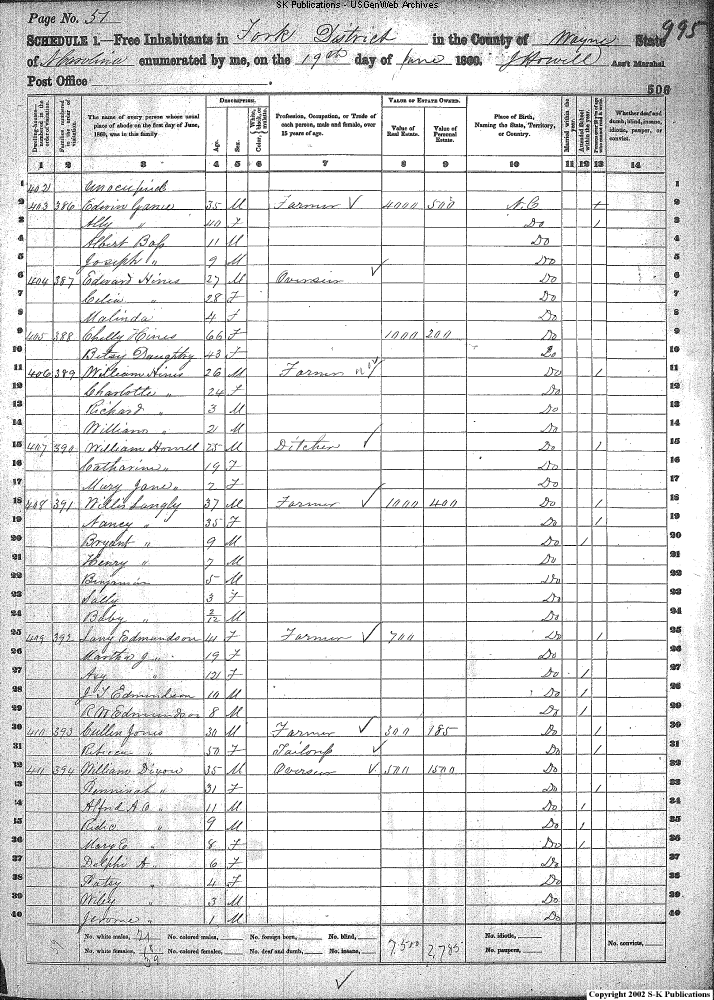 SK Publications - USGenWeb Archives
Page No. 51
995
SCHEDULE 1.—Free Inhabitants in Fork District in the County of Wayne State
of N Carolina enumerated by me, on the 19th day of June 1860. J Howell Ass't Marshal
Post Office
506
DESCRIPTION. VALUE OF ESTATE OWNED.
Dwelling-houses numbered in the order of visitation. Families numbered in the order of visitation. The name of every person whose usual place of abode on the first day of June, 1860, was in this family. Age. Sex. Color, White, black, or mulatto. Profession, Occupation, or Trade of each person, male and female, over 15 years of age. Value of Real Estate. Value of Personal Estate. Place of Birth, Naming the State, Territory, or Country. Married within the year. Attended School within the year. Whether deaf and dumb, blind, insane, idiotic, pauper, or convict.
1 2 3 4 5 6 7 8 9 10 11 12 13 14
1 402 Unocupied 1
2 403 386 Edwin 35 M Farmer 4000 500 N.C 2
3 Ally " 40 F Do 1 3
4 Albert 11 M Do 4
5 Joseph " 9 M Do 5
6 404 387 Edward Hines 27 M Do 6
7 Celia " 28 F Do 7
8 Malinda 4 F Do 8
9 405 388 Hines 66 F 1000 200 Do 9
10 Bitsy Daughtry 43 F Do 10
11 406 389 William Hines 26 M Farmer Do 1 11
12 Charlotte " 24 F Do 12
13 Richard " 3 M Do 13
14 William " M Do 14
15 407 390 William Howell 25 M Ditcher Do 1 15
16 Catharine " 19 F Do 16
17 Mary Jane " 2 F Do 17
18 408 391 Willis Langly 37 M Farmer 1000 400 Do 1 18
19 Nancy " 35 F Do 1 19
20 Bryant " 9 M Do 1 20
21 Henry " 7 M Do 21
22 Benjamin 5 M Do 22
23 Sally 3 F Do 23
24 Baby " 2/12 M Do 24
25 409 392 Edmundson F Farmer 700 Do 1 25
26 Martha J " 19 F Do 26
27 " F Do 1 27
28 Edmundson 10 M Do 1 28
29 R W Edmundson 8 M Do 1 29
30 410 393 Cullen Jones 30 M Farmer 300 185 Do 1 30
31 " 50 F Do 1 31
32 411 394 William Dixon 35 M 500 1500 Do 32
Penninah " 31 F Do 1
Alfred A O " 11 M Do 1
" 9 M Do 1
Mary E " 8 F Do 1
Delphi A " 6 F Do
" 4 F Do
Wiley " 3 M Do
40 Jerome " 1 M Do 40
No. white males, 21 No. colored males, No. foreign born, No. blind, 7,500 2,785 No. idiotic, No. convicts,
No. white females, 18 No. colored females, No. deaf and dumb, No. insane, No. paupers,
39
Copyright 2002 S-K Publications